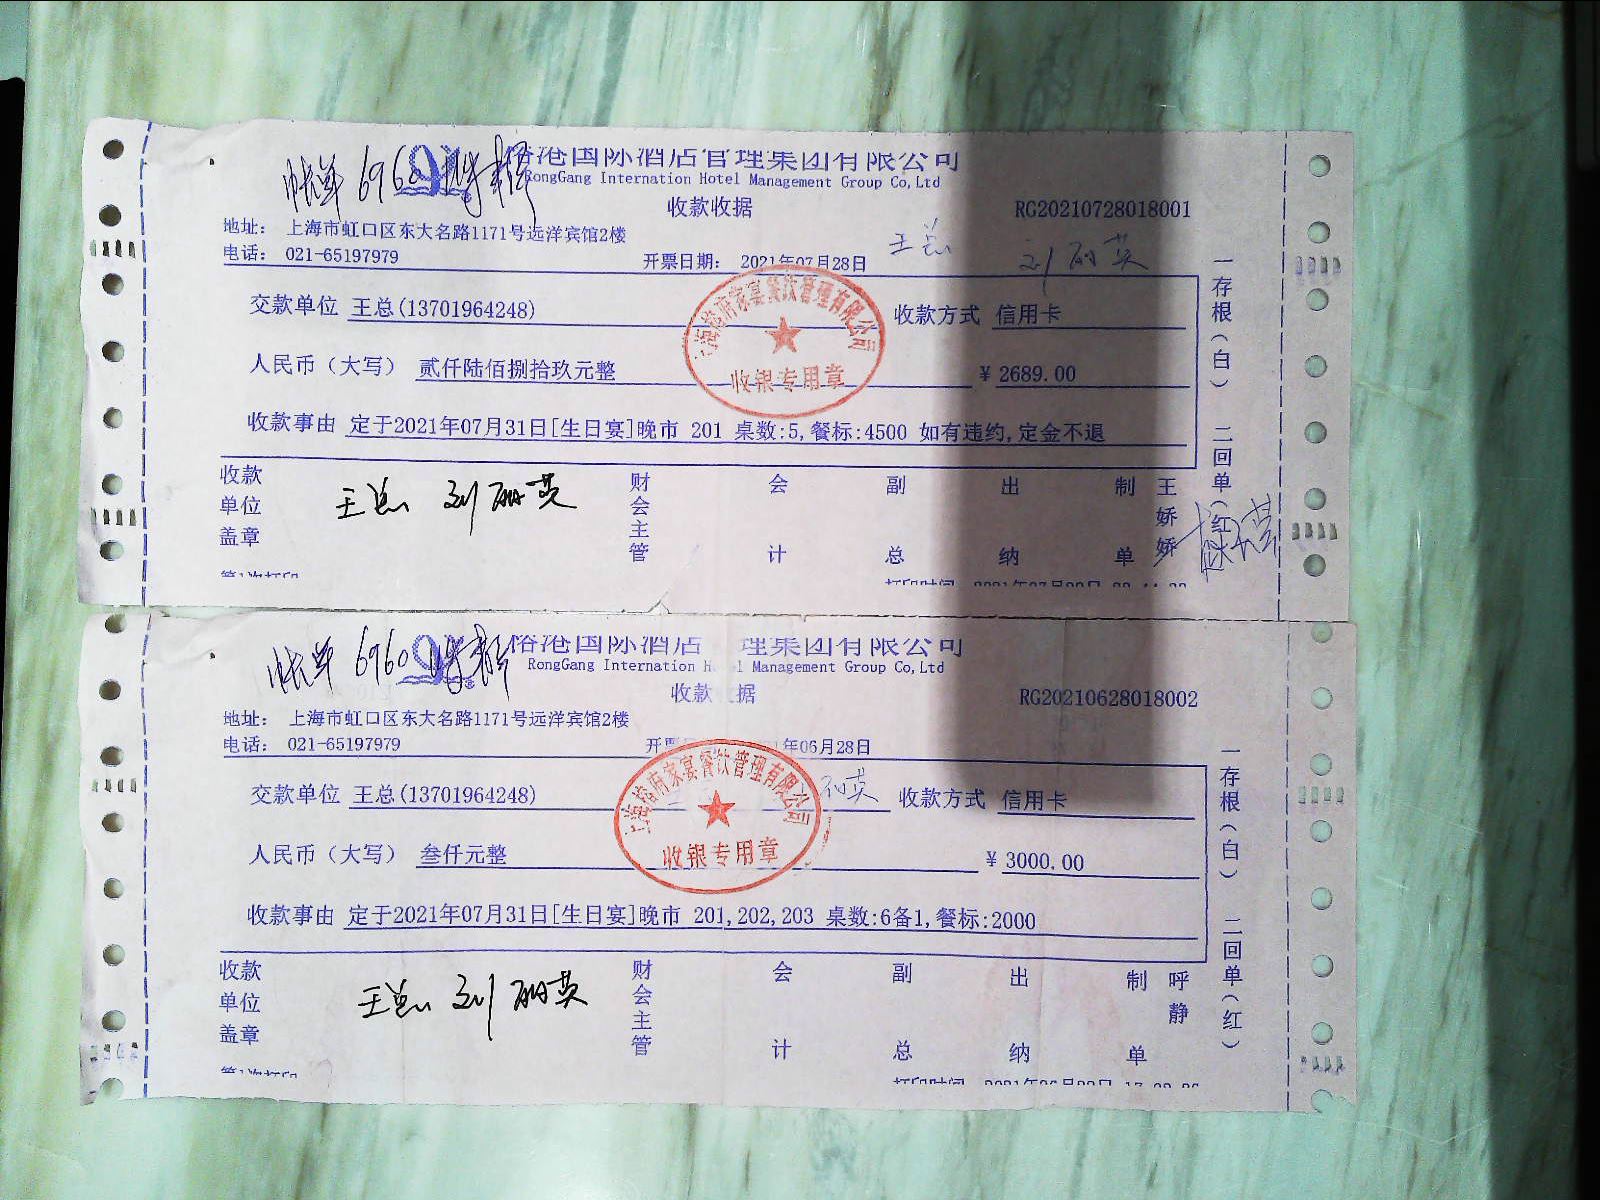 帐单 6960
榕港国际酒店管理集团有限公司
RongGang Internation Hotel Management Group Co,Ltd
收款收据
RG20210728018001
地址： 上海市虹口区东大名路1171号远洋宾馆2楼
电话： 021-65197979
开票日期： 2021年07月28日
王总 刘丽英
交款单位 王总(13701964248)
收款方式 信用卡
人民币（大写） 贰仟陆佰捌拾玖元整
¥ 2689.00
收款事由 定于2021年07月31日[生日宴]晚市 201 桌数:5,餐标:4500 如有违约,定金不退
收银专用章
收款单位盖章
王总 刘丽英
财会主管
会计
副总
出纳
制单
王娇娇
一存根(白) 二回单(红)
第1次打印
帐单 6960
榕港国际酒店 理集团有限公司
RongGang Internation H l Management Group Co,Ltd
收款 据
RG20210628018002
地址： 上海市虹口区东大名路1171号远洋宾馆2楼
电话： 021-65197979
开 年06月28日
交款单位 王总(13701964248)
收款方式 信用卡
人民币（大写） 叁仟元整
¥ 3000.00
收款事由 定于2021年07月31日[生日宴]晚市 201,202,203 桌数:6备1,餐标:2000
收银专用章
收款单位盖章
王总 刘丽英
财会主管
会计
副总
出纳
制单
呼静
一存根(白) 二回单(红)
第1次打印